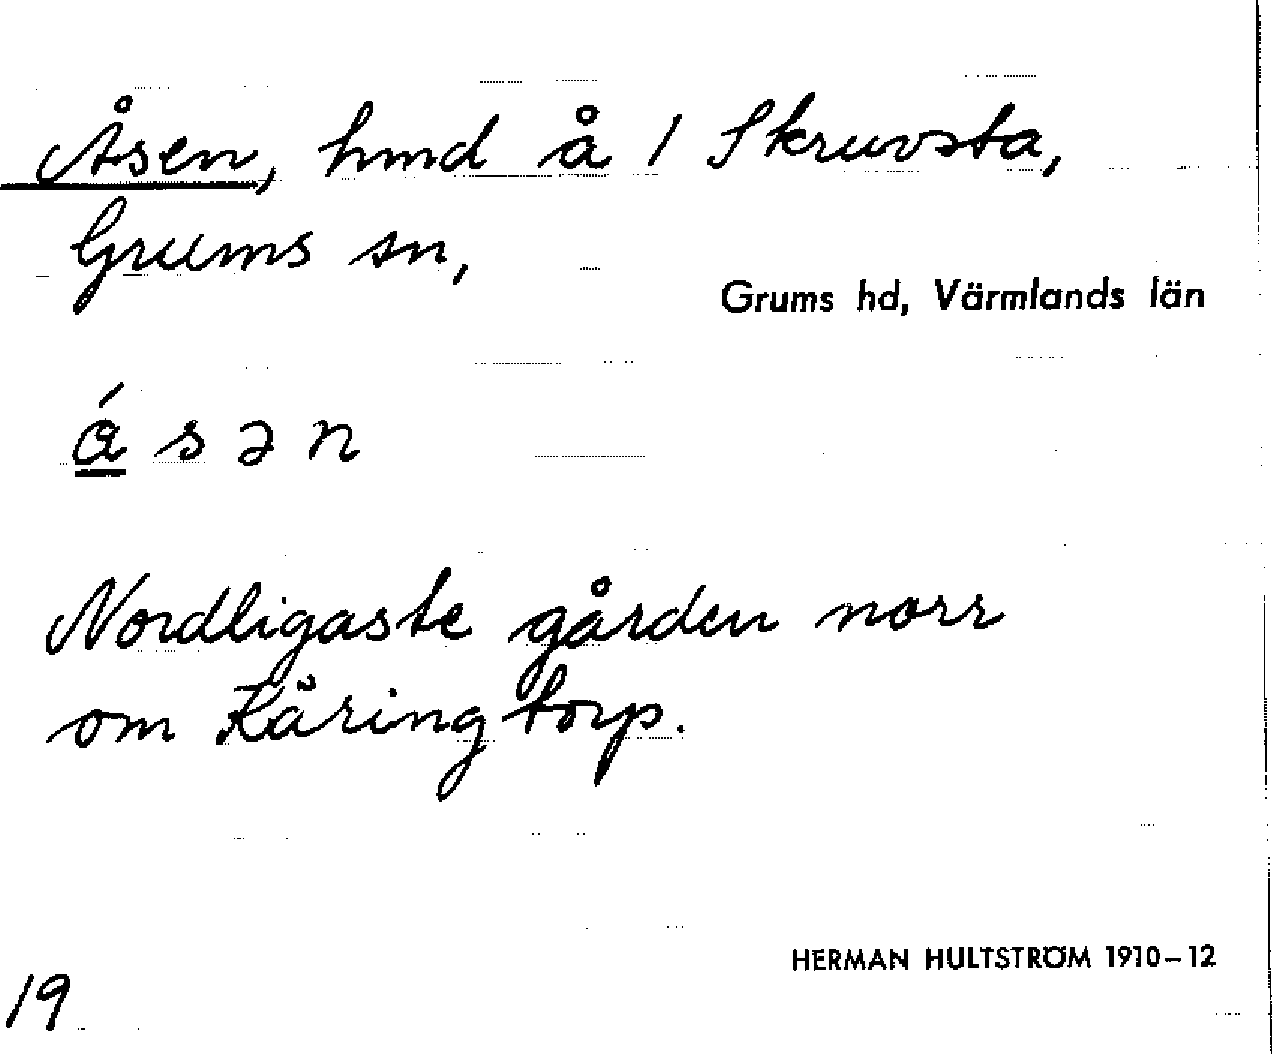 Åsen, hmd å 1 Skruvsta,
Grums sn,
Grums hd, Värmlands län
ɑ́ s ə n
Nordligaste gården norr
om Käringtorp.
HERMAN HULTSTRÖM 1910–12
19